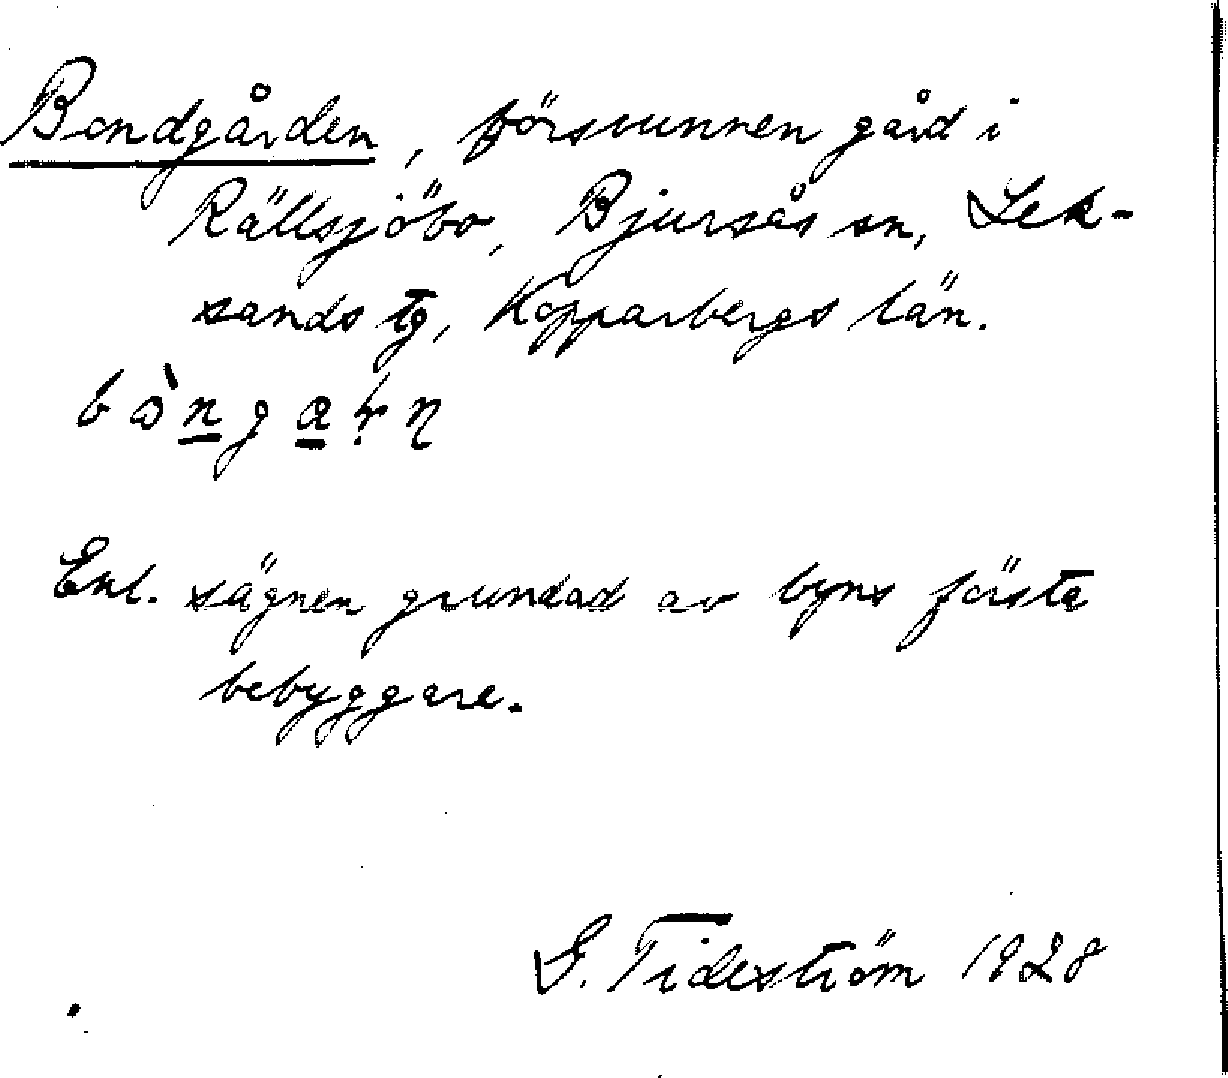 Bondgården, försvunnen gård i
Rällsjöbo, Bjursås sn, Lek-
sands tg, Kopparbergs län.
Enl. sägnen grundad av byns första
bebyggare.
G. Tideström 1928